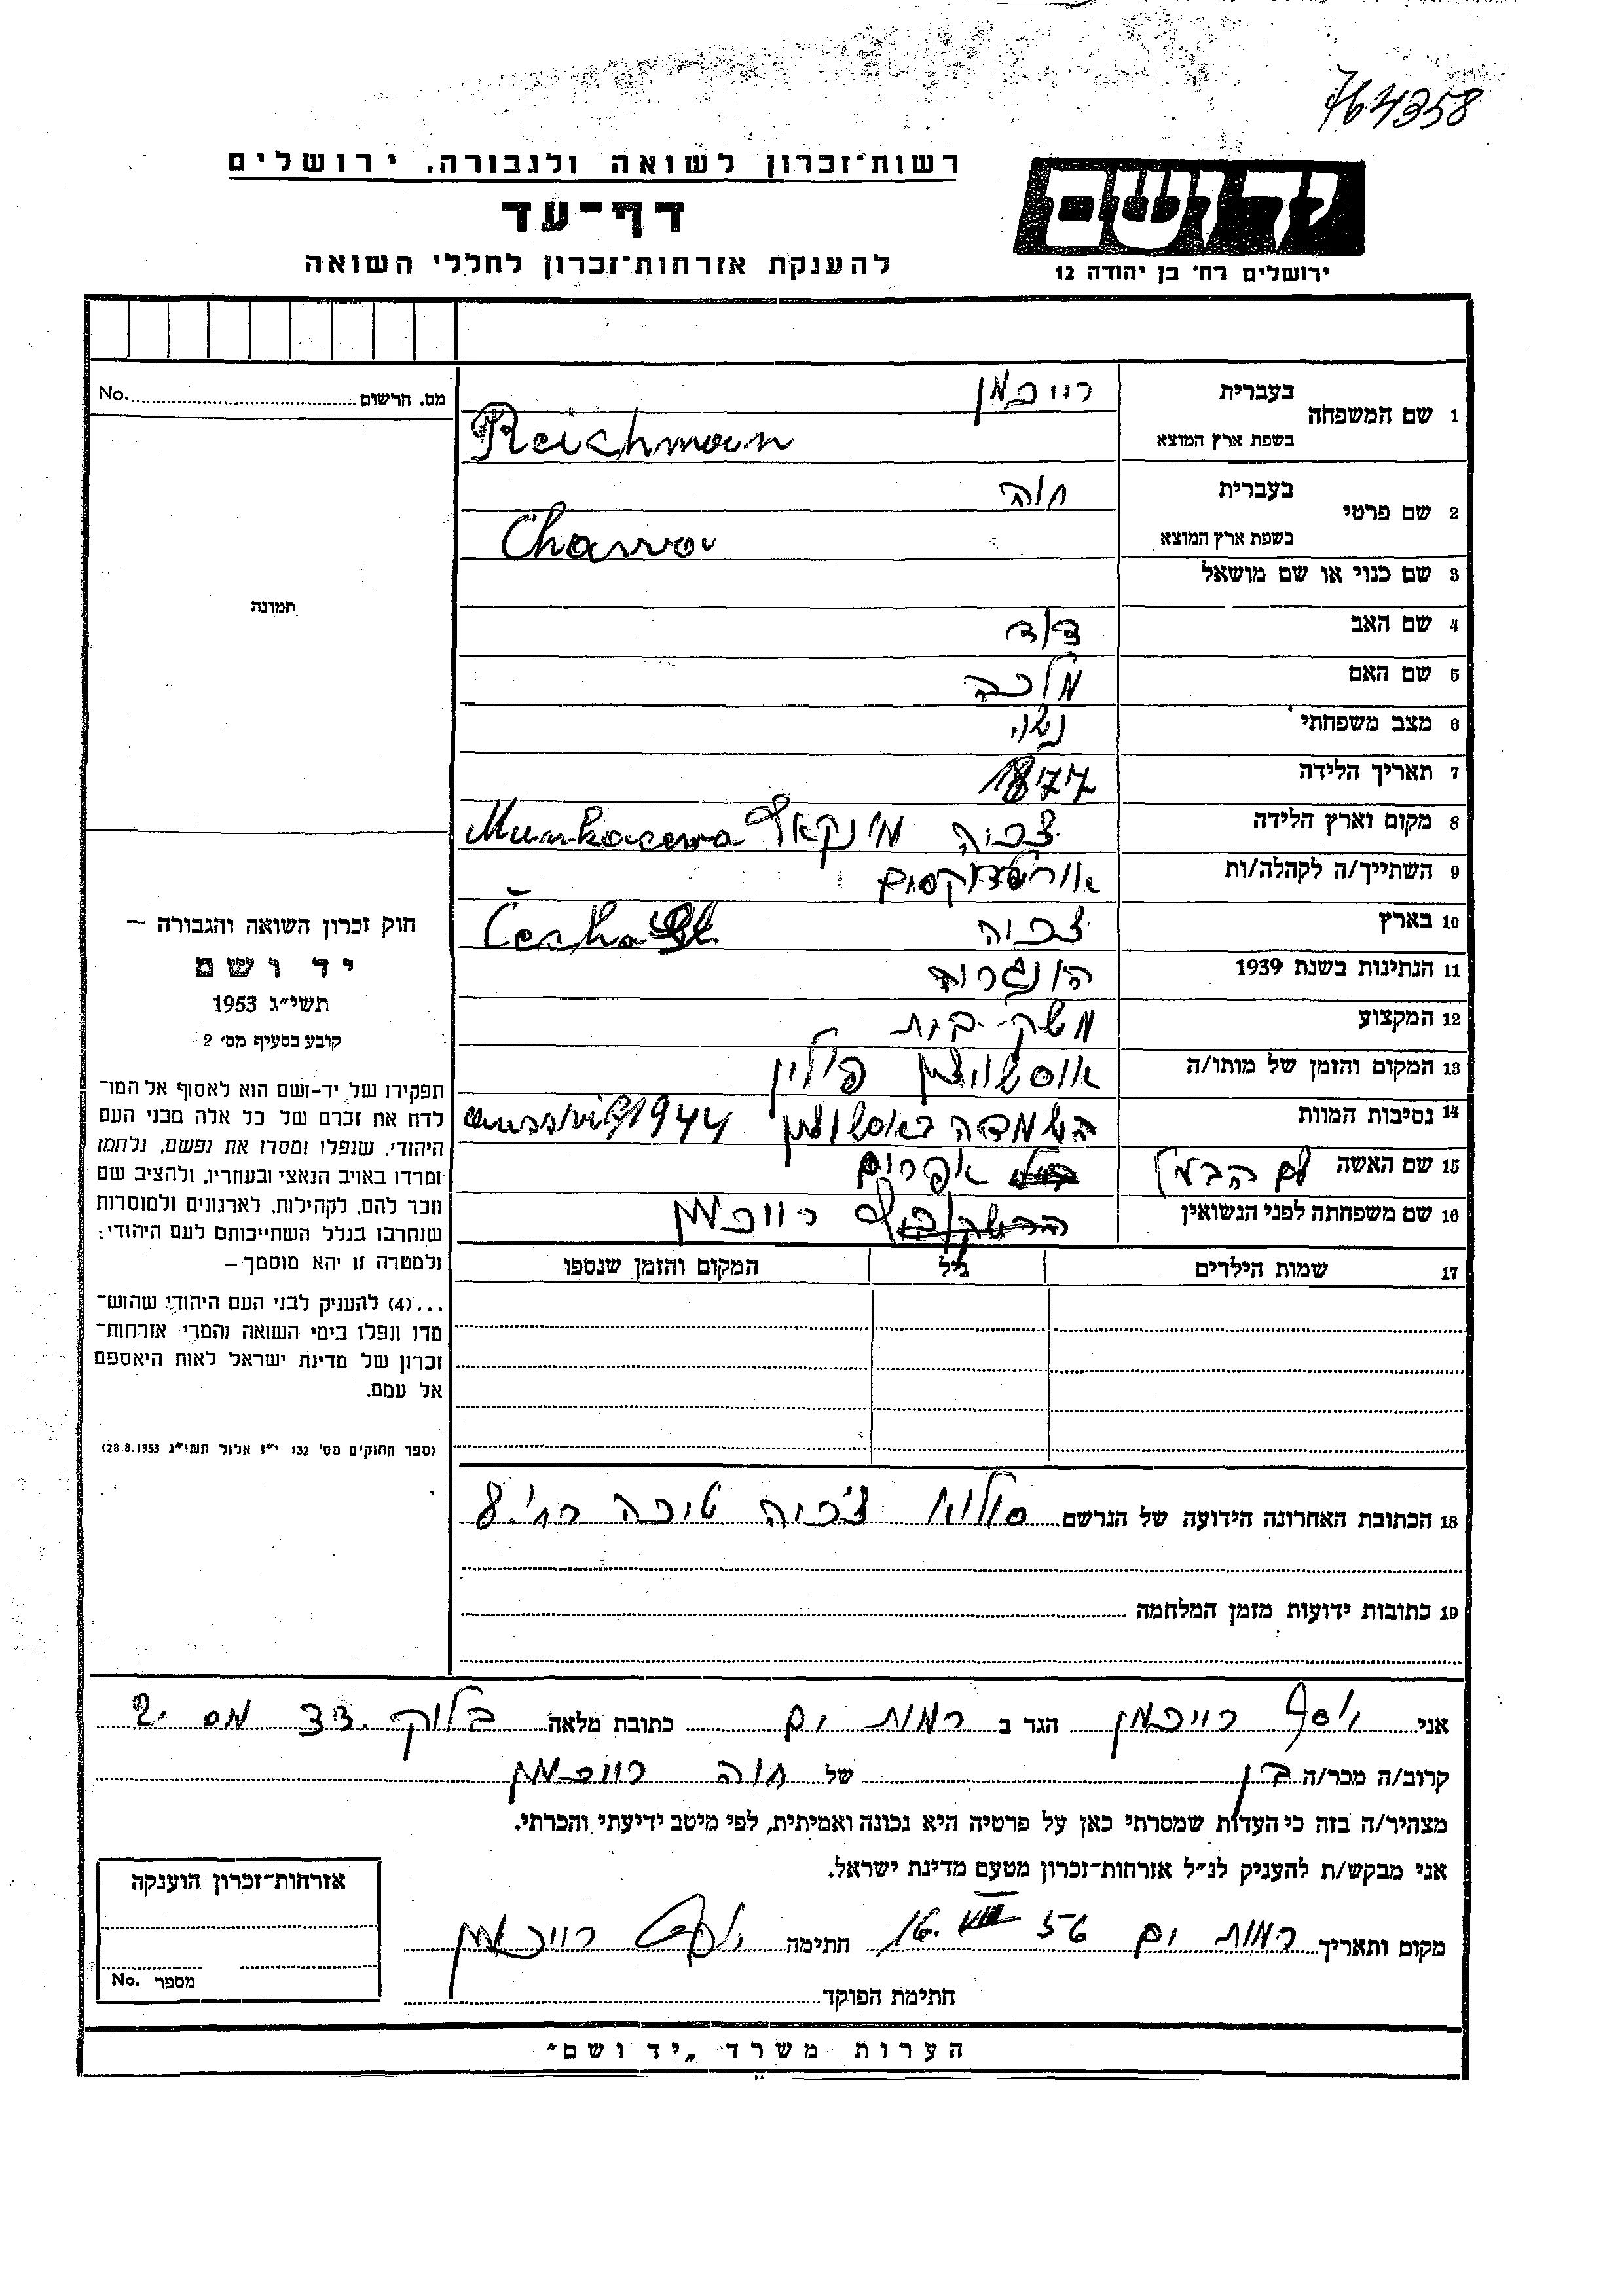 764358
רשות־זכרון לשואה ולגבורה. ירושלים
דף־עד
להענקת אזרחות־זכרון לחללי השואה
יד ושם
ירושלים רח' בן יהודה 12
מס. הרשום No.
1 שם המשפחה בעברית רייכמן
בשפת ארץ המוצא Reichman
2 שם פרטי בעברית חוה
בשפת ארץ המוצא Chawa
3 שם כנוי או שם מושאל
4 שם האב דוד
5 שם האם מלכה
6 מצב משפחתי נשוי
7 תאריך הלידה 1877
8 מקום וארץ הלידה צכיה Munkacewa
9 השתייך/ה לקהלה/ות
10 בארץ צכיה
11 הנתינות בשנת 1939 הונגרית
12 המקצוע משק-בית
13 המקום והזמן של מותו/ה אוסשויצין פולין
14 נסיבות המוות 1944
15 שם האשה שם הבעל אפרים
16 שם משפחתה לפני הנשואין רייכמן
17 שמות הילדים גיל המקום והזמן שנספו
תמונה
חוק זכרון השואה והגבורה —
יד ושם
תשי״ג 1953
קובע בסעיף מס' 2
תפקידו של יד-ושם הוא לאסוף אל המו־
לדת את זכרם של כל אלה מבני העם
היהודי, שנפלו ומסרו את נפשם, נלחמו
ומרדו באויב הנאצי ובעוזריו, ולהציב שם
וזכר להם, לקהילות, לארגונים ולמוסדות
שנחרבו בגלל השתייכותם לעם היהודי;
ולמטרה זו יהא מוסמך —
...(4) להעניק לבני העם היהודי שהוש־
מדו ונפלו בימי השואה והמרי אזרחות־
זכרון של מדינת ישראל לאות היאספם
אל עמם.
(ספר החוקים מס' 132 י״ז אלול תשי״ג 28.8.1953)
18 הכתובת האחרונה הידועה של הנרשם
19 כתובות ידועות מזמן המלחמה
אני יוסף רייכמן הגר ב רמות ים כתובת מלאה בלוק 33 מס 2
קרוב/ה מכר/ה בן של חוה רייכמן
מצהיר/ה בזה כי העדות שמסרתי כאן על פרטיה היא נכונה ואמיתית, לפי מיטב ידיעתי והכרתי.
אני מבקש/ת להעניק לנ״ל אזרחות-זכרון מטעם מדינת ישראל.
מקום ותאריך רמות ים 16. VIII 56 חתימה יוסף רייכמן
חתימת הפוקד
אזרחות־זכרון הוענקה
מספר No.
הערות משרד „יד ושם״